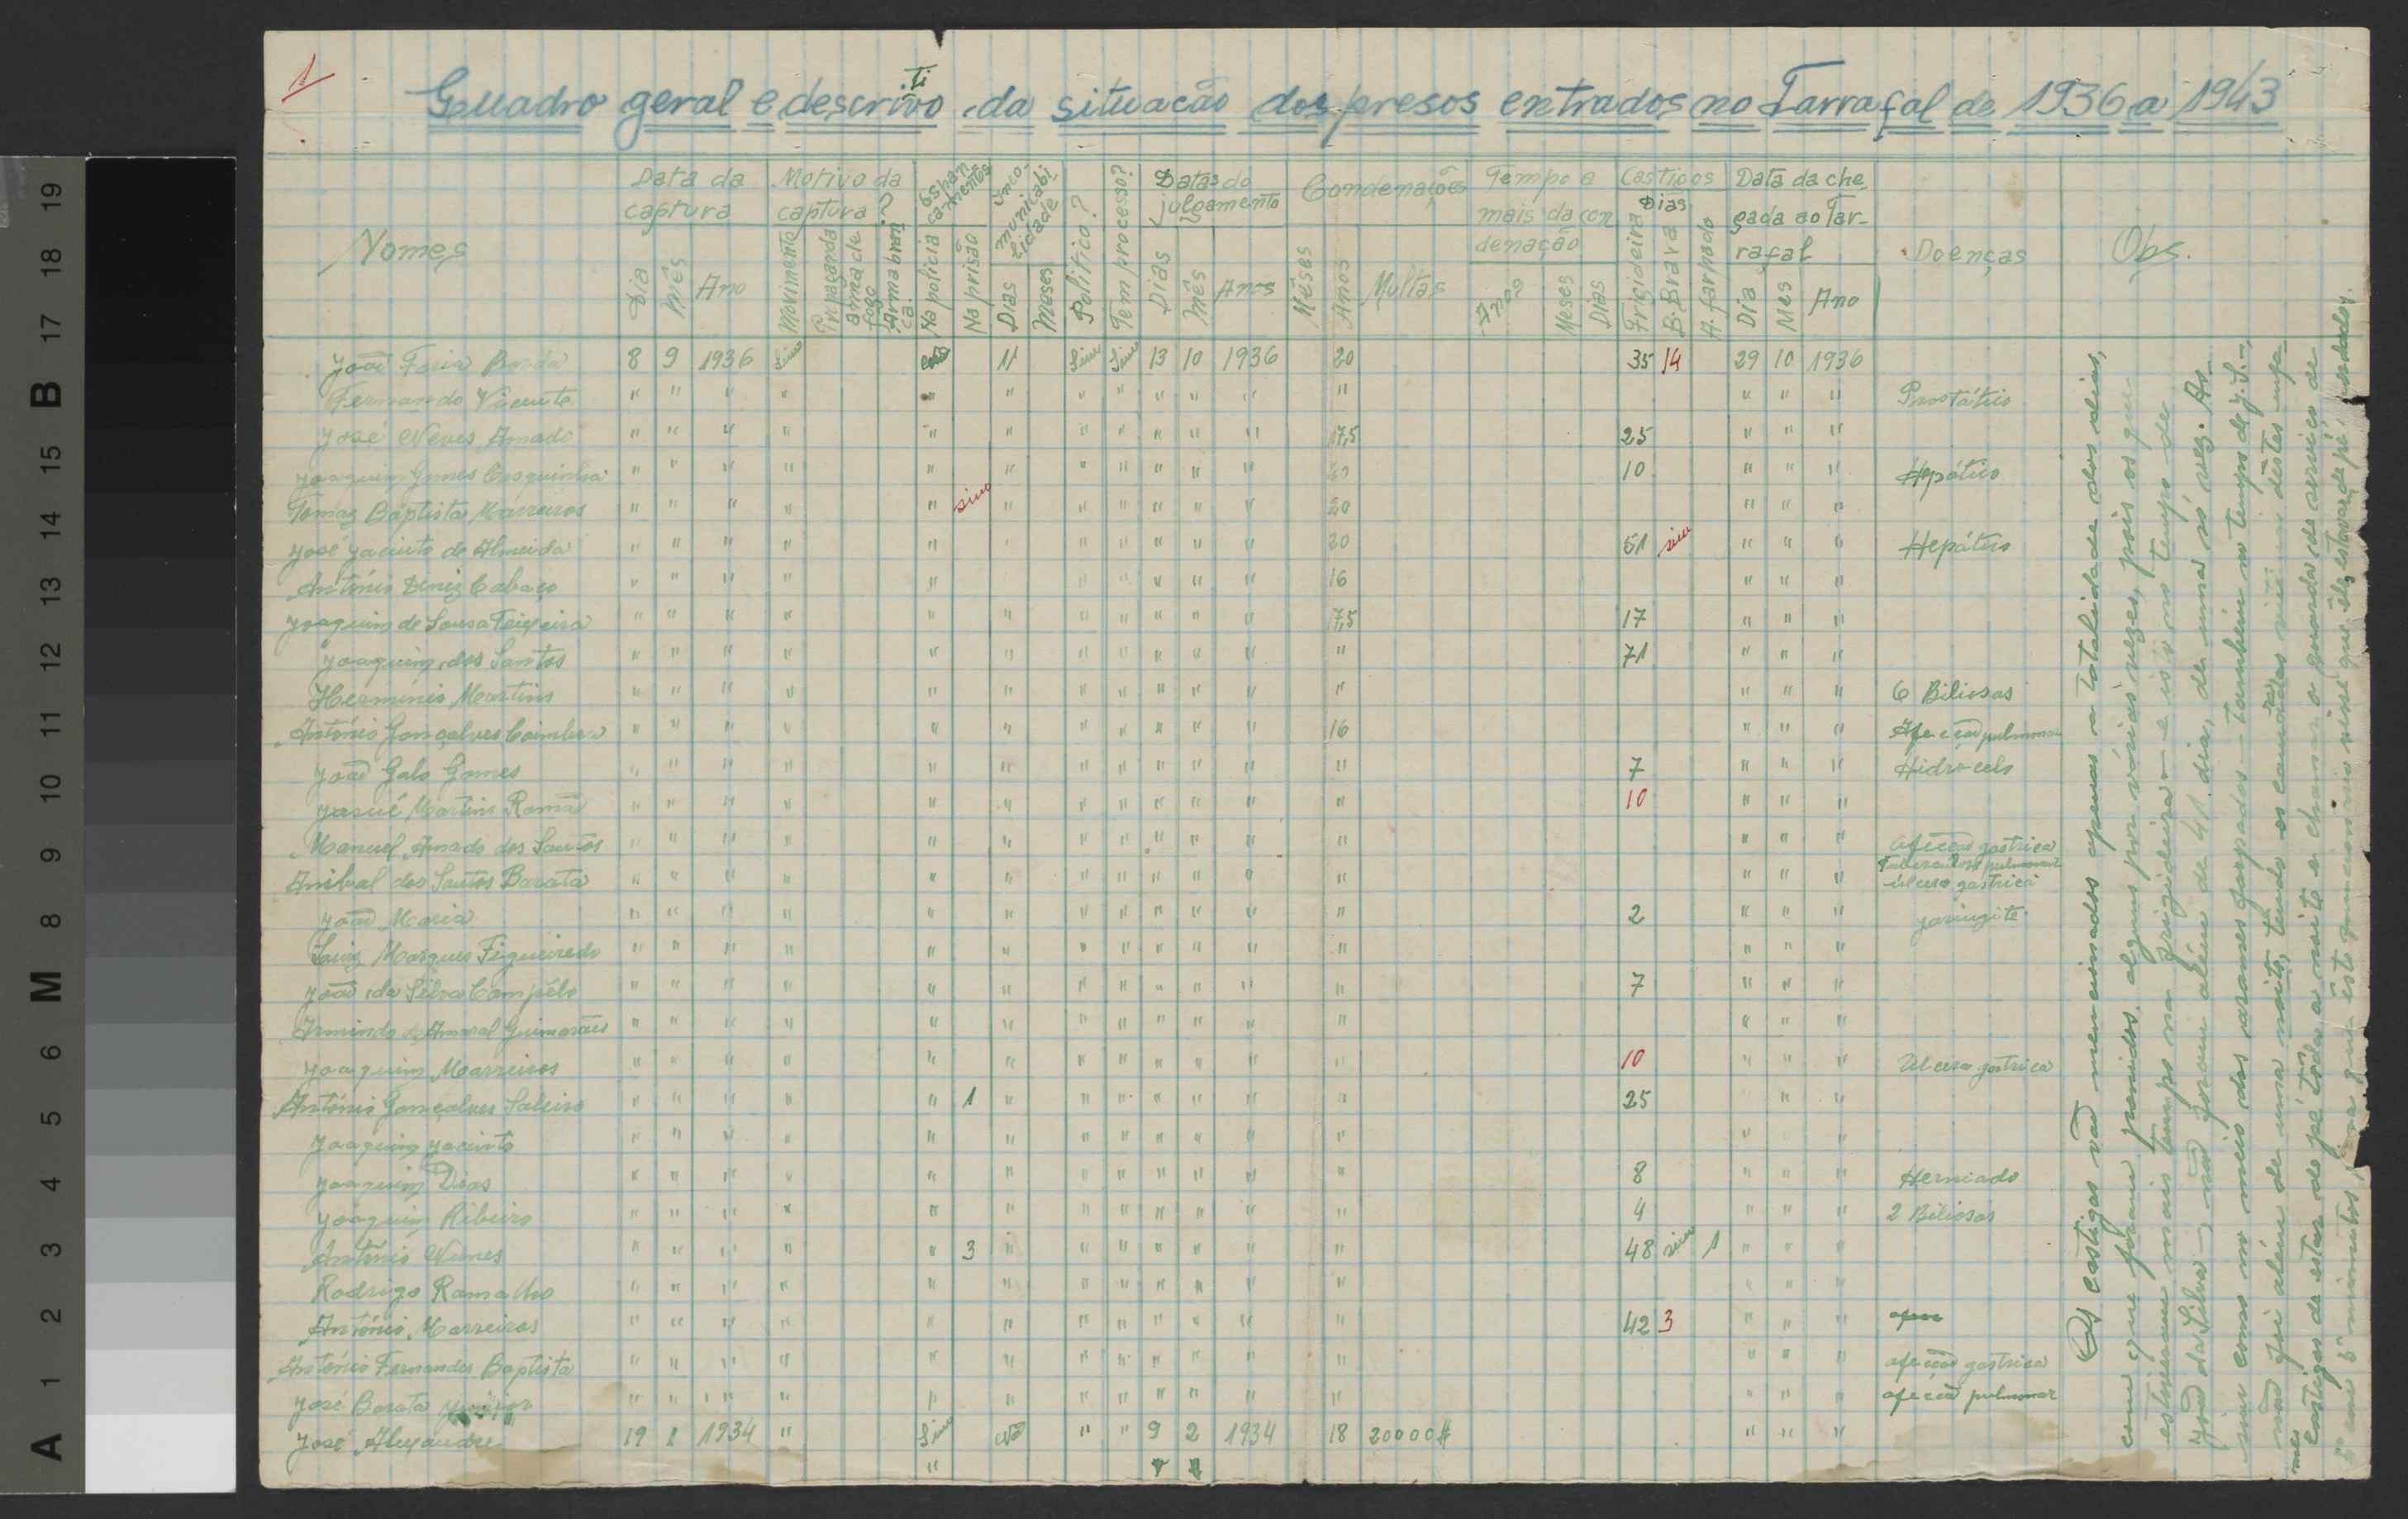 1
Quadro geral e descritivo da situação dos presos entrados no Tarrafal de 1936 a 1943
Nomes
Data da captura
Dia Mês Ano
Motivo da captura?
Movimento Propaganda Arma de fogo Arma branca
Espancamentos
Na policia Na prisão
Incomunicabilidade
Dias Meses
Politico?
Tem processo?
Datas do julgamento
Dias Mês Anos
Condenações
Mêses Anos Multas
Tempo a mais da condenação
Anos Meses Dias
Castigos
Dias
Frigideira B. Brava A. farpado
Data da chegada ao Tarrafal
Dia Mes Ano
Doenças
Obs.
João Faria Borda 8 9 1936 Sim 11 Sim Sim 13 10 1936 20 35 14 29 10 1936
Fernando Vicente " " " " " " " " " " " " " " " Prostático
José Neves Amado " " " " " " " " " " " 17,5 25 " " "
Joaquim Gomes Casquinha " " " " " " " " " " " 10 " " " Hepático
Tomaz Baptista Marreiros " " " " " sim " " " " " " 20 " " "
José Jacinto de Almeida " " " " " " " " " " " 20 51 sim " " " Hepático
António Diniz Cabaço " " " " " " " " " " 16 " " "
Joaquim de Sousa Teixeira " " " " " " " " " " " 17,5 17 " " "
Joaquim dos Santos " " " " " " " " " " " " 71 " " "
Herminio Martins " " " " " " " " " " " " " " " 6 Biliosas
António Gonçalves Coimbra " " " " " " " " " " " 16 " " " Afecção pulmonar
João Galo Gomes " " " " " " " " " " " " 7 " " " Hidrocelo
Josué Martins Romão " " " " " " " " " " " " 10 " " "
Manuel Amado dos Santos " " " " " " " " " " " " " " " afecção gastrica
Anibal dos Santos Barata " " " " " " " " " " " " " " " Tuberculose pulmonar
úlcera gastrica
João Maria " " " " " " " " " " " " 2 " " " faringite
Luiz Marques Figueiredo " " " " " " " " " " " " " " "
João da Silva Campêlo " " " " " " " " " " " " 7 " " "
Armindo do Amaral Guimarães " " " " " " " " " " " " " " "
Joaquim Marreiros " " " " " " " " " " " " 10 " " " Ulcera gastrica
António Gonçalves Saleiro " " " " " 1 " " " " " " " 25 " "
Joaquim Jacinto " " " " " " " " " " " " " " "
Joaquim Dias " " " " " " " " " " " " 8 " " " Herniado
Joaquim Ribeiro " " " " " " " " " " " " 4 " " " 2 Biliosas
António Nunes " " " " " 3 " " " " " " " 48 sim 1 " " "
Rodrigo Ramalho " " " " " " " " " " " " " " "
António Marreiros " " " " " " " " " " " " 42 3 " " "
António Fernandes Baptista " " " " " " " " " " " " " " " afecção gastrica
José Barata Júnior " " " " " " " " " " " " " " " afecção pulmonar
José Alexandre 19 1 1934 " Sim " " 9 2 1934 18 20000$ " " "
"
Os castigos vão mencionados apenas a totalidade dos dias,
com que foram punidos, alguns por várias vezes, pois os que
estiveram mais tempo na frigideira - e isso no tempo de
João da Silva -, não foram além de 41 dias, de uma só vez. As-
sim como no meio dos arames farpados - também no tempo de J. S. -,
não foi além de uma noite, tendo os camaradas
castigos de estar de pé toda a noite e chamar o guarda de serviço de
5 em 5 minutos, para que êste que êle estava de pé, andado.